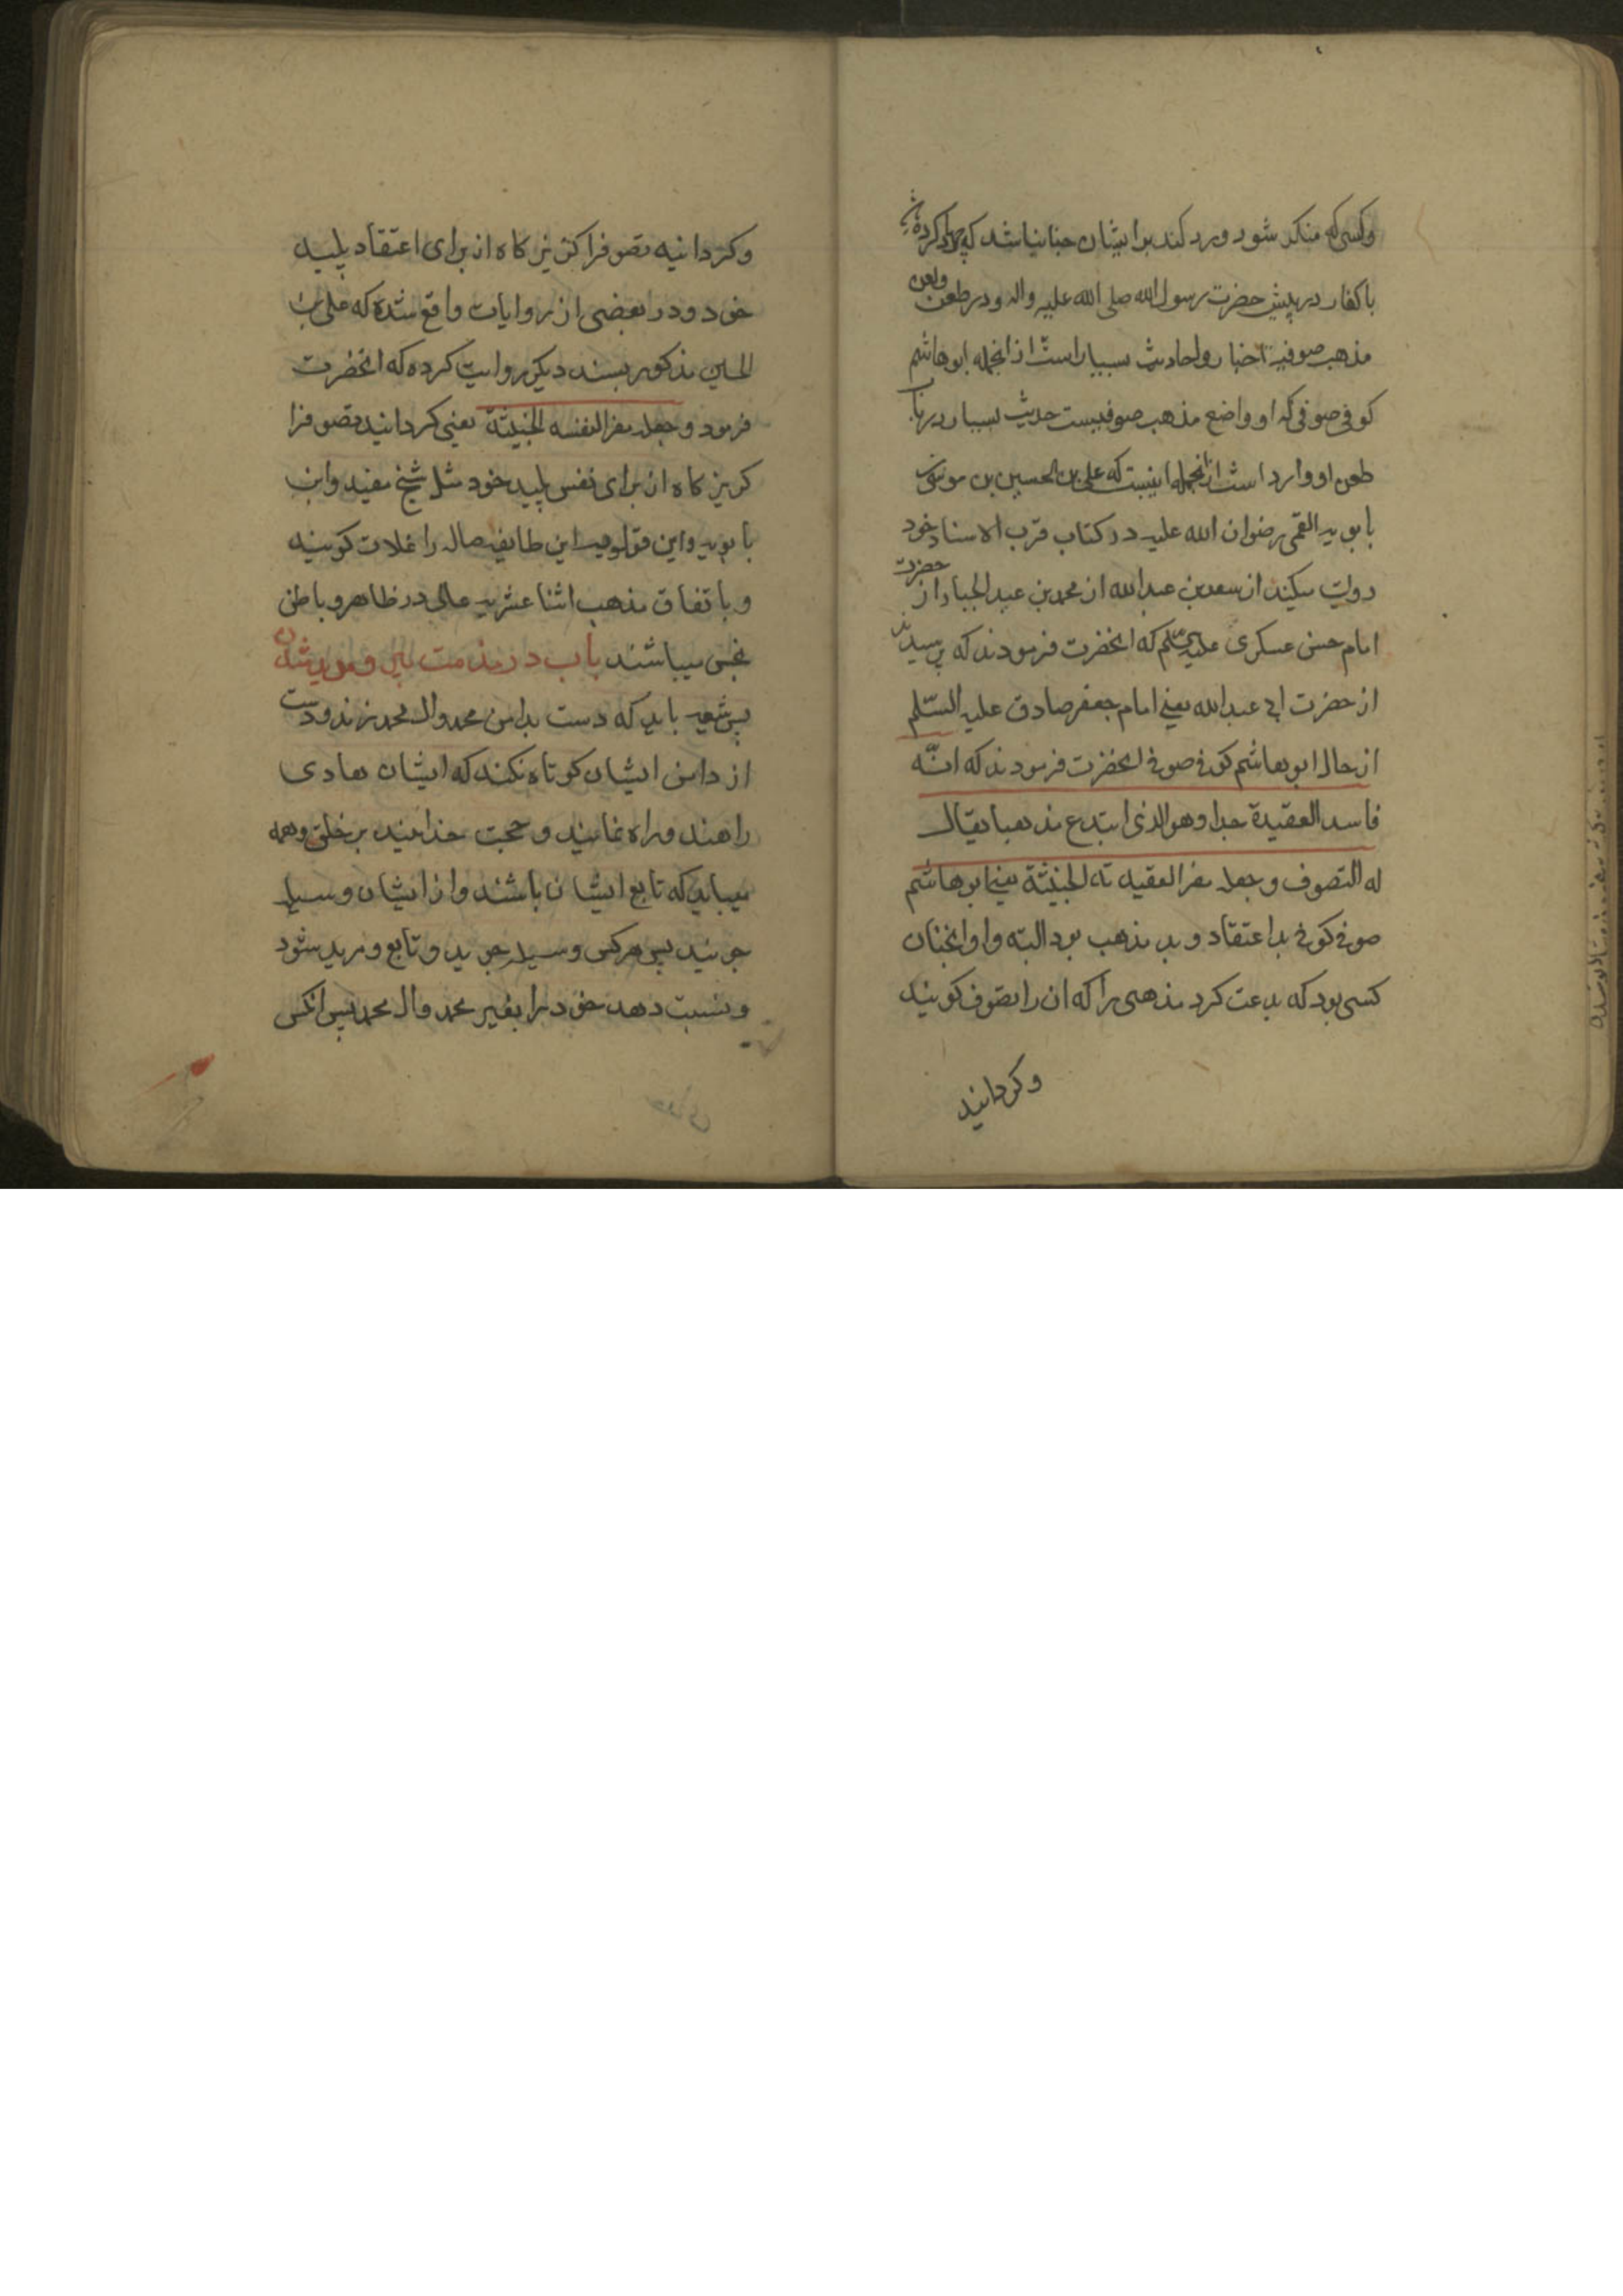 وکسی که منکر شود و رد کند بر ایشان چنان باشد که جهاد کرده
با کفار در پیش حضرت رسول الله صلی الله علیه واله و در طعن ولعن
مذهب صوفیه اخبار واحادیث بسیار است از انجمله ابوهاشم
کوفی صوفی که او واضع مذهب صوفیست حدیث بسیار در باب
طعن او وارد است از انجمله اینست که علی بن الحسین بن موسی بن
بابویه القمی رضوان الله علیه در کتاب قرب الاسناد خود
روایت میکند از سعد بن عبدالله از محمد بن عبدالجبار از حضرت
امام حسن عسکری علیه السلم که انحضرت فرمودند که پرسیدند
از حضرت ابی عبدالله یعنی امام جعفر صادق علیه السّلم
از حال ابوهاشم کوفی صوفی انحضرت فرمودند که انّه
فاسد العقیدة جدا وهو الذی ابتدع مذهبا یقال
له التصوف وجعله مفرا لعقیدته الخبیثة یعنی ابوهاشم
صوفی کوفی بد اعتقاد و بد مذهب بود البته واو انچنان
کسی بود که بدعت کرد مذهبی را که ان را تصوف کویند
وکردانید
وکردانید تصوف را کریز کاه از برای اعتقاد پلید
خود و در بعضی از روایات واقع شده که علی بن
الحسین مذکور بسند دیکر روایت کرده که انحضرت
فرمود وجعله مفرا لنفسه الخبیثة یعنی کردانید تصوف را
کریز کاه از برای نفس پلید خود مثل شیخ مفید وابن
بابویه واین قولویه این طایفه ضاله را غلات کویند
و باتفاق مذهب اثنا عشریه غالی در ظاهر و باطن
نجس میباشند باب در مذمت پیر و مرید شدن
پس شیعه باید که دست بدامن محمد وال محمد زند و دست
از دامن ایشان کوتاه نکند که ایشان هادی
راهند و راه نمایند و حجت خدایند بر خلق وهمه
میباید که تابع ایشان باشند واز ایشان وسیله
جویند پس هر کس وسیله جوید و تابع و مرید شود
ونسبت دهد خود را بغیر محمد وال محمد پس انکس